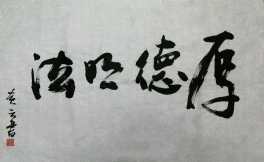 厚德明法